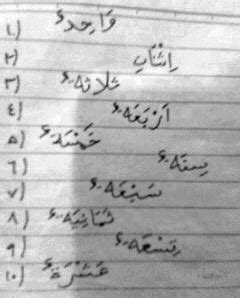 ١) وَاحِدٌ
٢) اِثْنَانِ
٣) ثَلَاثَةٌ
٤) أَرْبَعَةٌ
٥) خَمْسَةٌ
٦) سِتَّةٌ
٧) سَبْعَةٌ
٨) ثَمَانِيَةٌ
٩) تِسْعَةٌ
١٠) عَشَرَةٌ